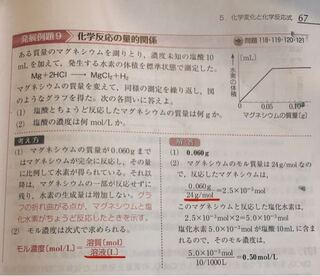 5. 化学変化と化学反応式 67
発展例題9 化学反応の量的関係
問題 118・119・120・121
ある質量のマグネシウムを測りとり、濃度未知の塩酸10
mLを加えて、発生する水素の体積を標準状態で測定した。
Mg+2HCl → MgCl₂+H₂
マグネシウムの質量を変えて、同様の測定を繰り返し、図
のようなグラフを得た。次の各問いに答えよ。
(1) 塩酸とちょうど反応したマグネシウムの質量は何gか。
(2) 塩酸の濃度は何mol/Lか。
水素の体積
0 0.05 0.10
マグネシウムの質量〔g〕
考え方
(1) マグネシウムの質量が0.060gまで
はマグネシウムが完全に反応し、その量
に比例して水素が得られている。それ以
降は、マグネシウムの一部が反応せずに
残り、水素の生成量は増加しない。グラ
フの折れ曲がる点が、マグネシウムと塩
化水素がちょうど反応したときを示す。
(2) モル濃度は次式で求められる。
モル濃度〔mol/L〕=溶質〔mol〕/溶液〔L〕
解答
(1) 0.060g
(2) マグネシウムのモル質量は24g/molなの
で、反応したマグネシウムは、
0.060g/24g/mol=2.5×10⁻³mol
このマグネシウムと反応した塩化水素は、
2.5×10⁻³mol×2=5.0×10⁻³mol
塩化水素5.0×10⁻³molが塩酸10mLに含まれ
るので、そのモル濃度は、
5.0×10⁻³mol/10/1000L=0.50mol/L